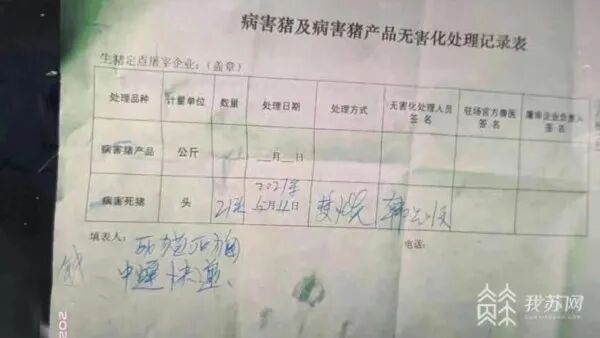 病害猪及病害猪产品无害化处理记录表
生猪定点屠宰企业：(盖章)
处理品种 计量单位 数量 处理日期 处理方式 无害化处理人员签名 驻场官方兽医签名 屠宰企业负责人签名
病害猪产品 公斤 __月__日
病害死猪 头 21头 2021年 5月11日
填表人： 电话：
我苏网